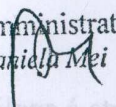 mministrat
aniela Mei